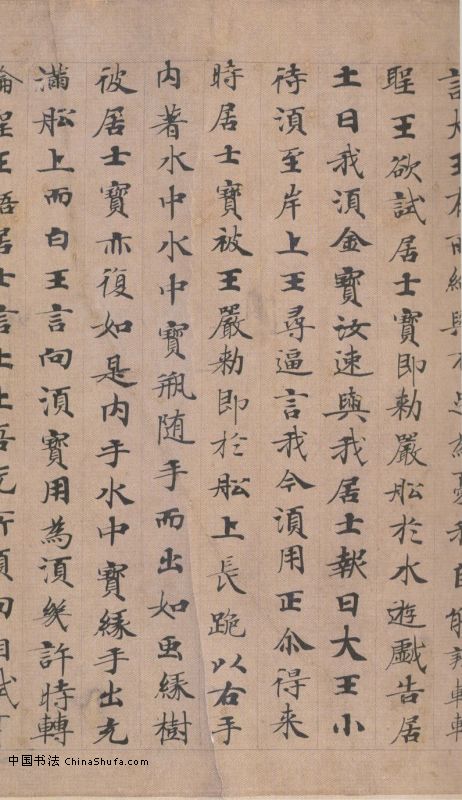 聖王欲試居士寶即勅嚴舩於水遊戲告居
士曰我須金寶汝速與我居士報曰大王小
待須至岸上王尋逼言我今須用正尒得来
時居士寶被王嚴勅即於舩上長跪以右手
内著水中水中寶瓶随手而出如虫緣樹
彼居士寶亦復如是内手水中寶緣手出充
滿舩上而白王言向須寶用為須幾許時轉
輪聖王語居士言止止吾无所須向相試
中国书法 ChinaShufa.com